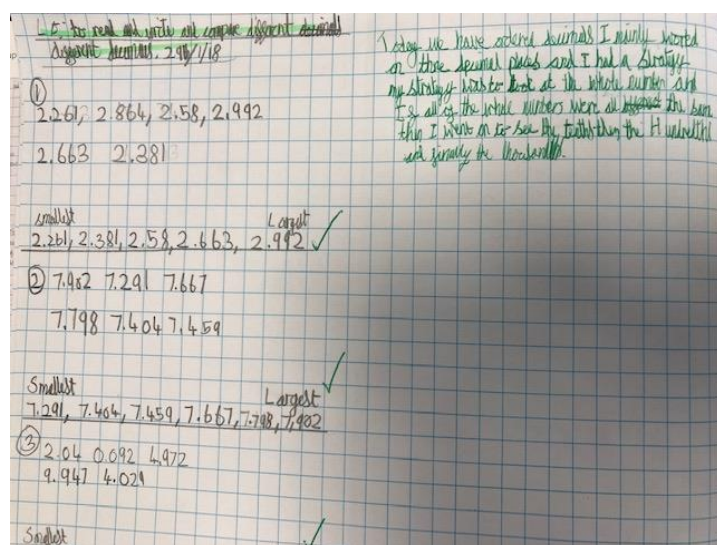 L.O: to read and write and compare different decimals
different decimals. 29/1/18
①
2.261, 2.864, 2.58, 2.992
2.663 2.381
smallest Largest
2.261, 2.381, 2.58, 2.663, 2.992 ✓
② 7.902 7.291 7.667
7.798 7.404 7.459
✓
Smallest Largest
7.291, 7.404, 7.459, 7.667, 7.798, 7,902
③ 2.04 0.092 4.972
9.947 4.029
Smallest ✓
Today we have ordered decimals I mainly worked
on three decimal places and I had a Stratigy
my strategy was to look at the whole number and
If all of the whole numbers were all the sam
then I went on to see the tenths then the Hundredths
and finally the thousandths.